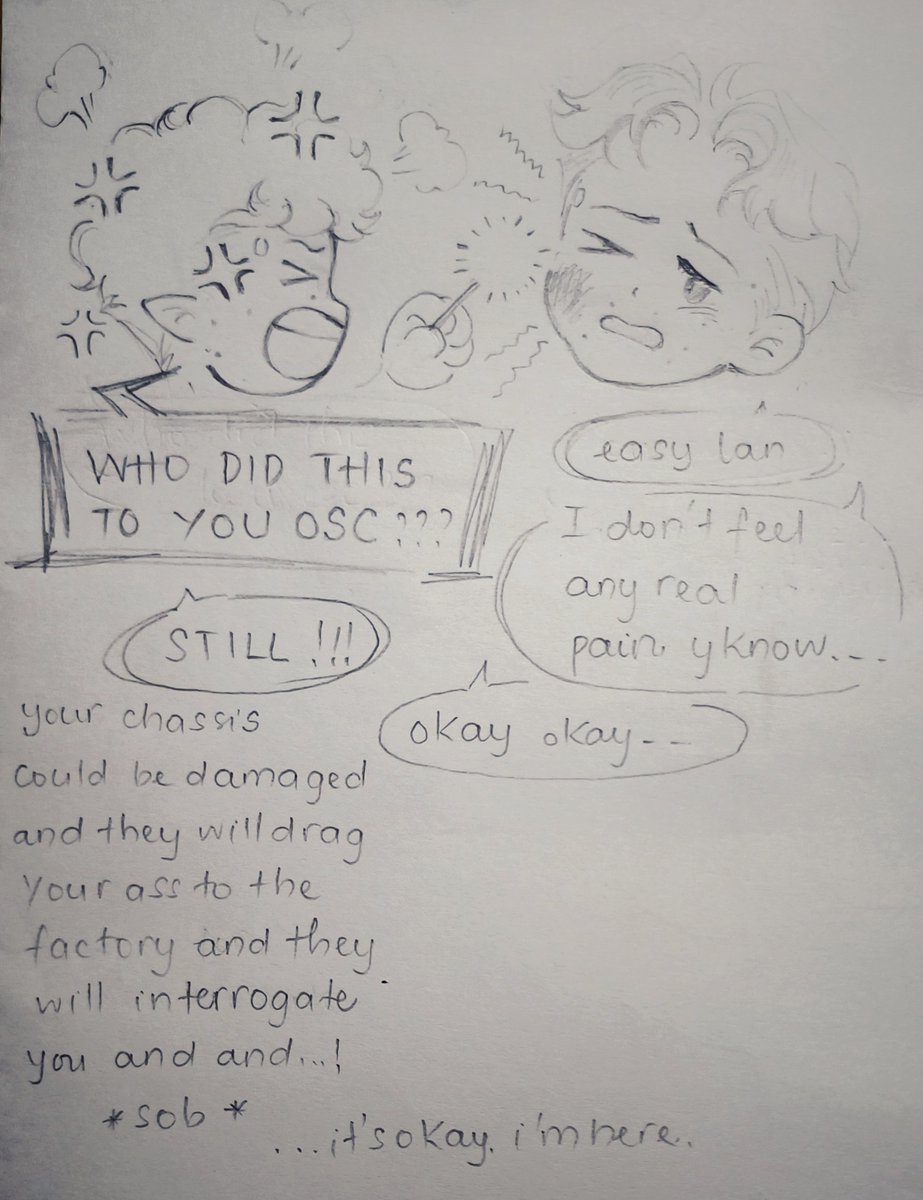 WHO DID THIS
TO YOU OSC???
easy lan
I don't feel
any real
pain yknow...
STILL!!!
okay okay--
your chassis
could be damaged
and they will drag
your ass to the
factory and they
will interrogate
you and and...!
*sob*
...it's okay. i'm here.